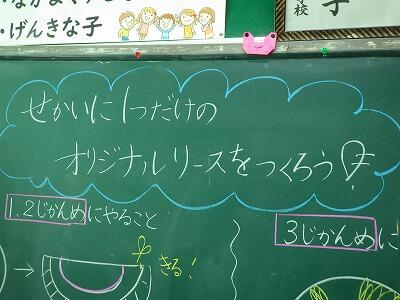 ・げんきな子
校
せかいに1つだけの
オリジナルリースをつくろう!
1,2じかんめにやること
3じかんめに
きる!